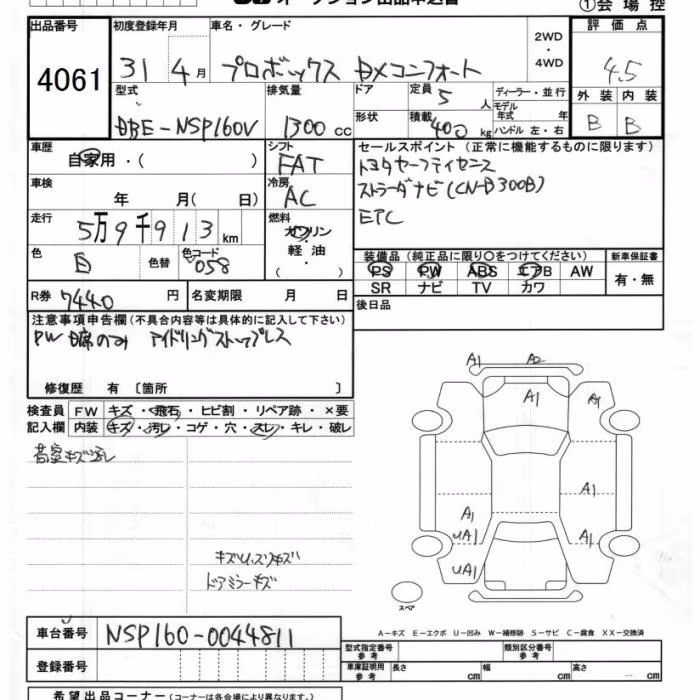 オークション出品申込書
①会場控
出品番号 4061
初度登録年月 31 4月
車名・グレード プロボックス DXコンフォート
2WD・4WD
評価点 4.5
外装 B 内装 B
型式 DBE-NSP160V
排気量 1300cc
ドア
形状
定員 5人
積載 400kg
ディーラー・並行
モデル年式 年
ハンドル 左・右
車歴 自家用・( )
シフト FAT
セールスポイント (正常に機能するものに限ります)
トヨタセーフティセンス
ストラーダナビ(CN-B300B)
ETC
車検 年 月( 日)
冷房 AC
走行 5万9千913km
燃料 ガソリン
軽油・
( )
色 白 色替 色コード 058
装備品(純正品に限り○をつけてください)
PS PW ABS エアB AW
SR ナビ TV カワ
新車保証書 有・無
R券 7440円 名変期限 月 日
後日品
注意事項申告欄(不具合内容等は具体的に記入して下さい)
PW D席のみ アイドリングストップレス
修復歴 有 〔箇所 〕
検査員記入欄
FW キズ・飛石・ヒビ割・リペア跡・×要
内装 キズ・汚レ・コゲ・穴・スレ・キレ・破レ
荷室キズ汚レ
ドアミラーキズ
A1 A2
A1 A1
A1
A1
UA1
A1
UA1
スペア
A-キズ E-エクボ U-凹み W-補修跡 S-サビ C-腐食 XX-交換済
車台番号 NSP160-0044811
登録番号
型式指定番号参考
類別区分番号参考
車庫証明用参考 長さ cm 幅 cm 高さ - cm
希望出品コーナー(コーナーは各会場により異なります。)